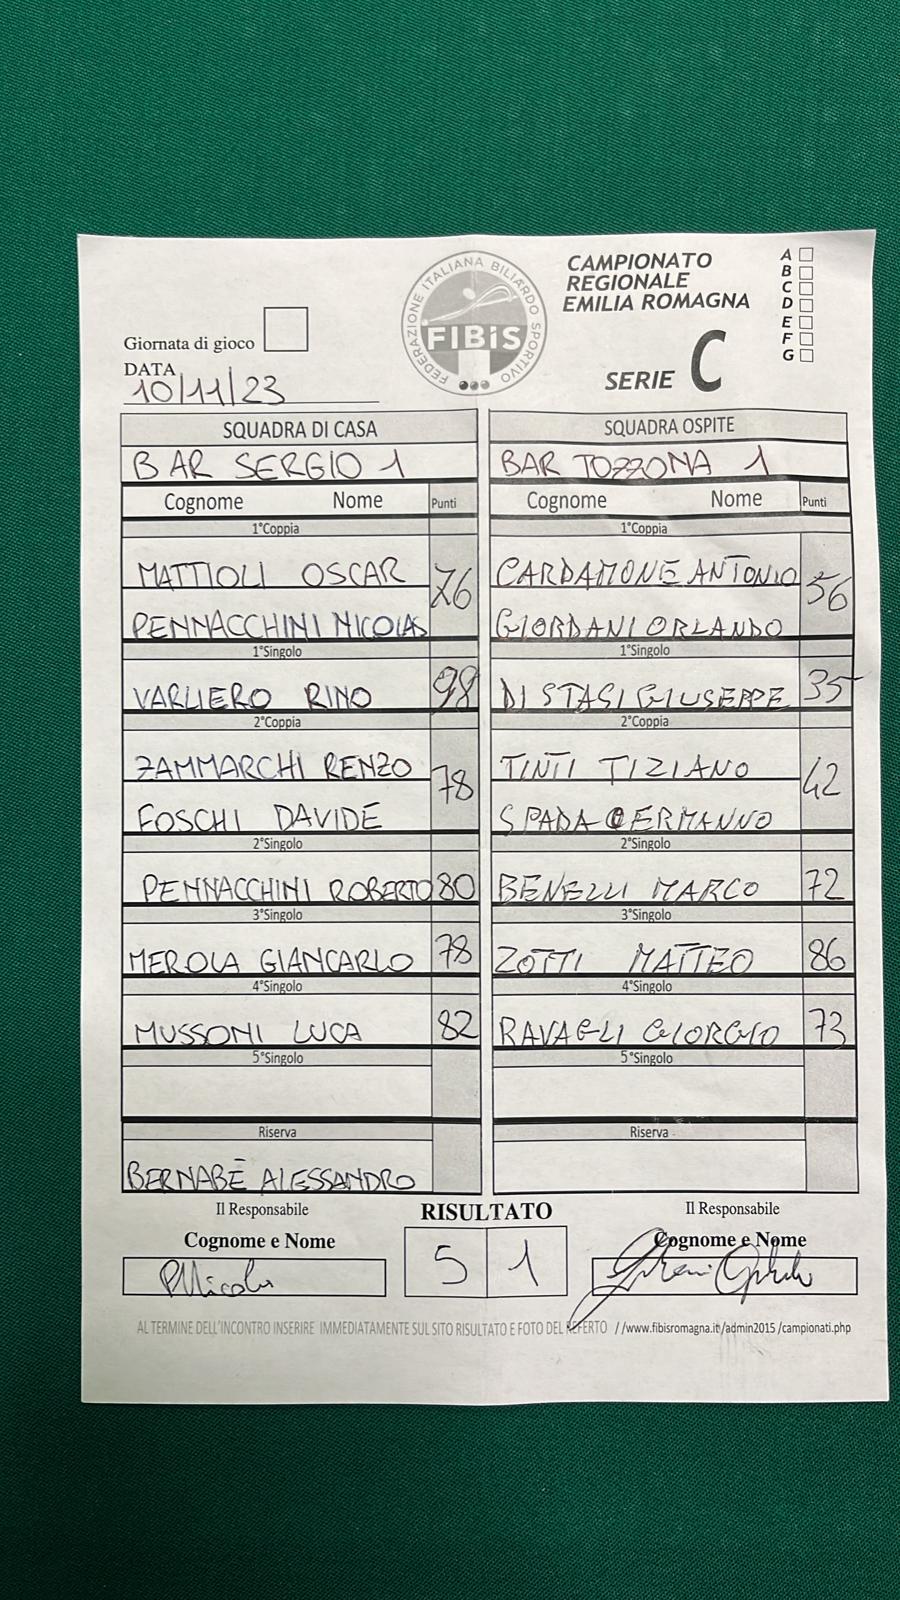 FEDERAZIONE ITALIANA BILIARDO SPORTIVO
FIBiS
CAMPIONATO
REGIONALE
EMILIA ROMAGNA
SERIE C
A
B
C
D
E
F
G
Giornata di gioco
DATA
10/11/23
SQUADRA DI CASA
BAR SERGIO 1
Cognome Nome Punti
1°Coppia
MATTIOLI OSCAR
76
PENNACCHINI NICOLAS
1°Singolo
VARLIERO RINO 98
2°Coppia
ZAMMARCHI RENZO
78
FOSCHI DAVIDE
2°Singolo
PENNACCHINI ROBERTO 80
3°Singolo
MEROLA GIANCARLO 78
4°Singolo
MUSSONI LUCA 82
5°Singolo
Riserva
BERNABÈ ALESSANDRO
SQUADRA OSPITE
BAR TOZZONA 1
Cognome Nome Punti
1°Coppia
CARDAMONE ANTONIO
56
GIORDANI ORLANDO
1°Singolo
DI STASI GIUSEPPE 35
2°Coppia
TINTI TIZIANO
42
SPADA ERMANNO
2°Singolo
BENELLI MARCO 72
3°Singolo
ZOTTI MATTEO 86
4°Singolo
RAVAGLI GIORGIO 73
5°Singolo
Riserva
Il Responsabile
Cognome e Nome
RISULTATO
5 1
Il Responsabile
Cognome e Nome
AL TERMINE DELL'INCONTRO INSERIRE IMMEDIATAMENTE SUL SITO RISULTATO E FOTO DEL REFERTO //www.fibisromagna.it/admin2015/campionati.php